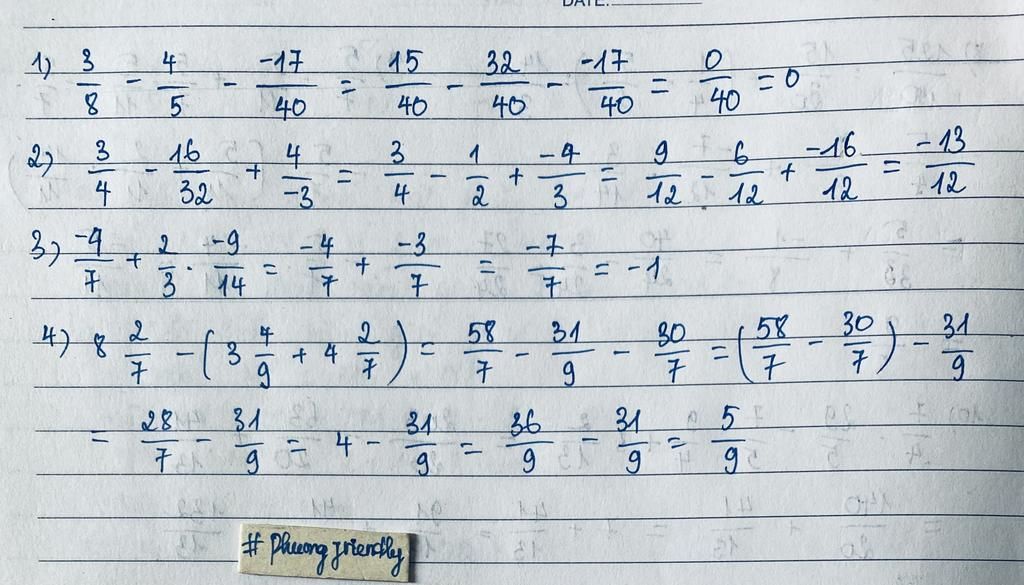 DATE:
1) 3/8 - 4/5 - -17/40 = 15/40 - 32/40 - -17/40 = 0/40 = 0
2) 3/4 - 16/32 + 4/-3 = 3/4 - 1/2 + -4/3 = 9/12 - 6/12 + -16/12 = -13/12
3) -4/7 + 2/3 . -9/14 = -4/7 + -3/7 = -7/7 = -1
4) 8 2/7 - (3 4/9 + 4 2/7) = 58/7 - 31/9 - 30/7 = (58/7 - 30/7) - 31/9
= 28/7 - 31/9 = 4 - 31/9 = 36/9 - 31/9 = 5/9
# Phuong friendly